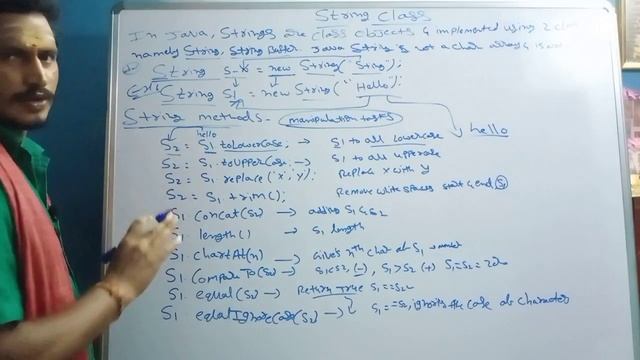 String Class
In Java, Strings are class objects & implemented using 2 clas
namely String, String Buffer. Java String is not a char array & is
String s-x = new String("String");
String S1 = new String("Hello");
String methods - manipulation tasks
hello
hello
S2 = S1 toLowerCase; → S1 to all lowercase
S2 = S1. toUpperCase → S1 to all uppercase
S2 = S1. replace('x','y'); Replace x with y
S2 = S1 trim(); Remove white spaces start & end S1
S1 Concat(S2) → adding S1 & S2
S1 length() → S1 length
S1 chartAt(n) → Gives nth char of S1
S1 CompareTo(S2) → S1<S2, (-), S1>S2 (+) S1=S2=zero
S1 equal(S2) → Return True S1==S2
S1 eqalIgnoreCase(S2) → S1==S2, ignores the case of characters